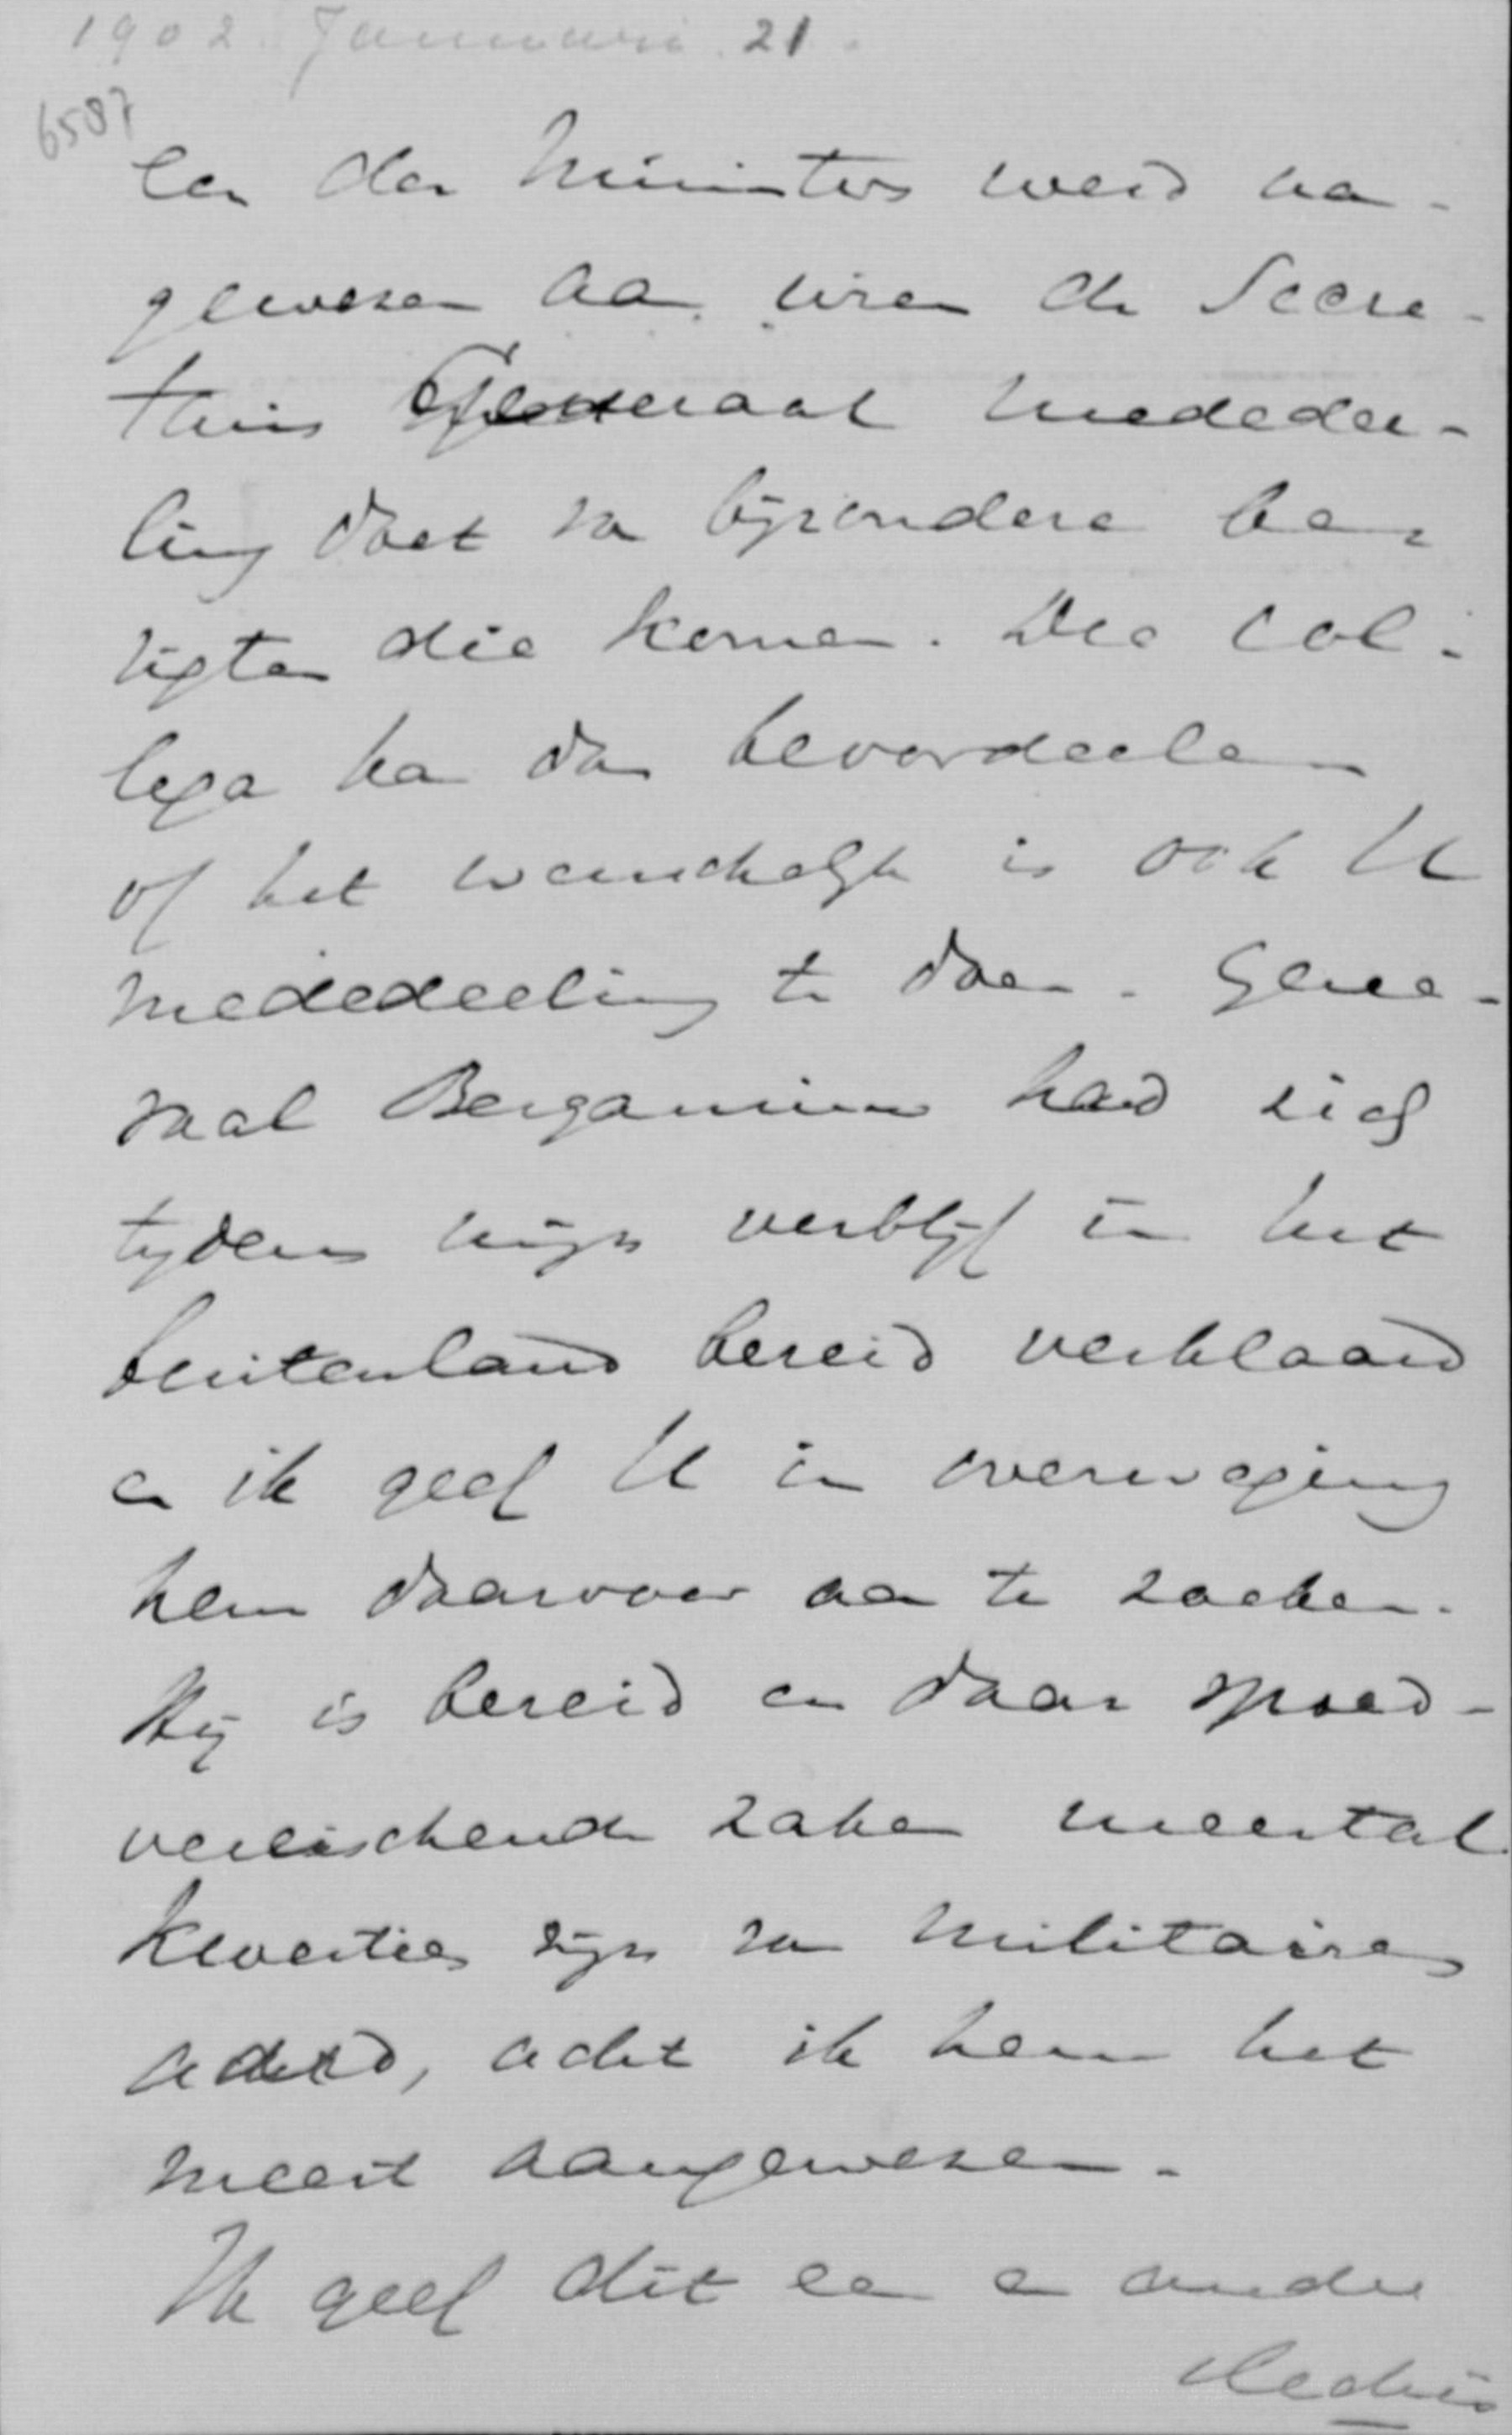 1902 Januari 21.
6587
een der Ministers werd aan-
gewezen aan wien de Secre-
taris Generaal mededee-
ling doet van bijzondere be-
rigten die komen. Die col-
lega kan dan beoordeelen
of het wenschelijk is ook U
mededeeling te doen. Gene-
raal Bergansius had zich
tijdens mijn verblijf in het
buitenland bereid verklaard
en ik geef U in overweging
hem daarvoor aan te zoeken.
Hij is bereid en daar spoed-
vereischende zaken meestal
kwesties zijn van militairen
aard, acht ik hem het
meest aangewezen.
Ik geef dit een en ander
slechts